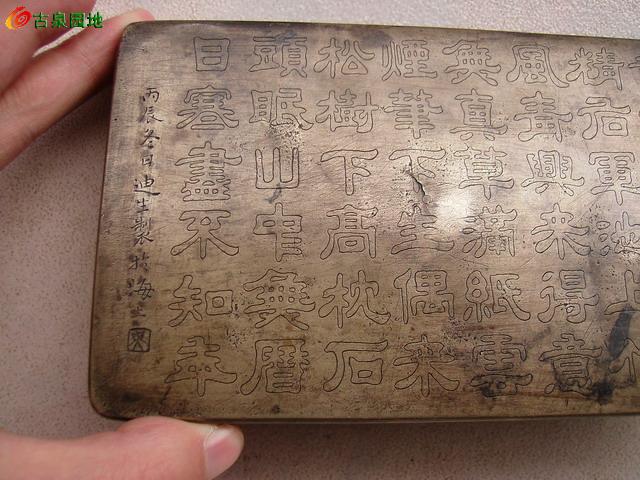 古泉园地
精右軍上
風興來得意
無真草滿紙雲
煙筆下生偶來
松樹下高枕石
頭眠山中無曆
日寒盡不知年
丙辰冬日迪生製於海上